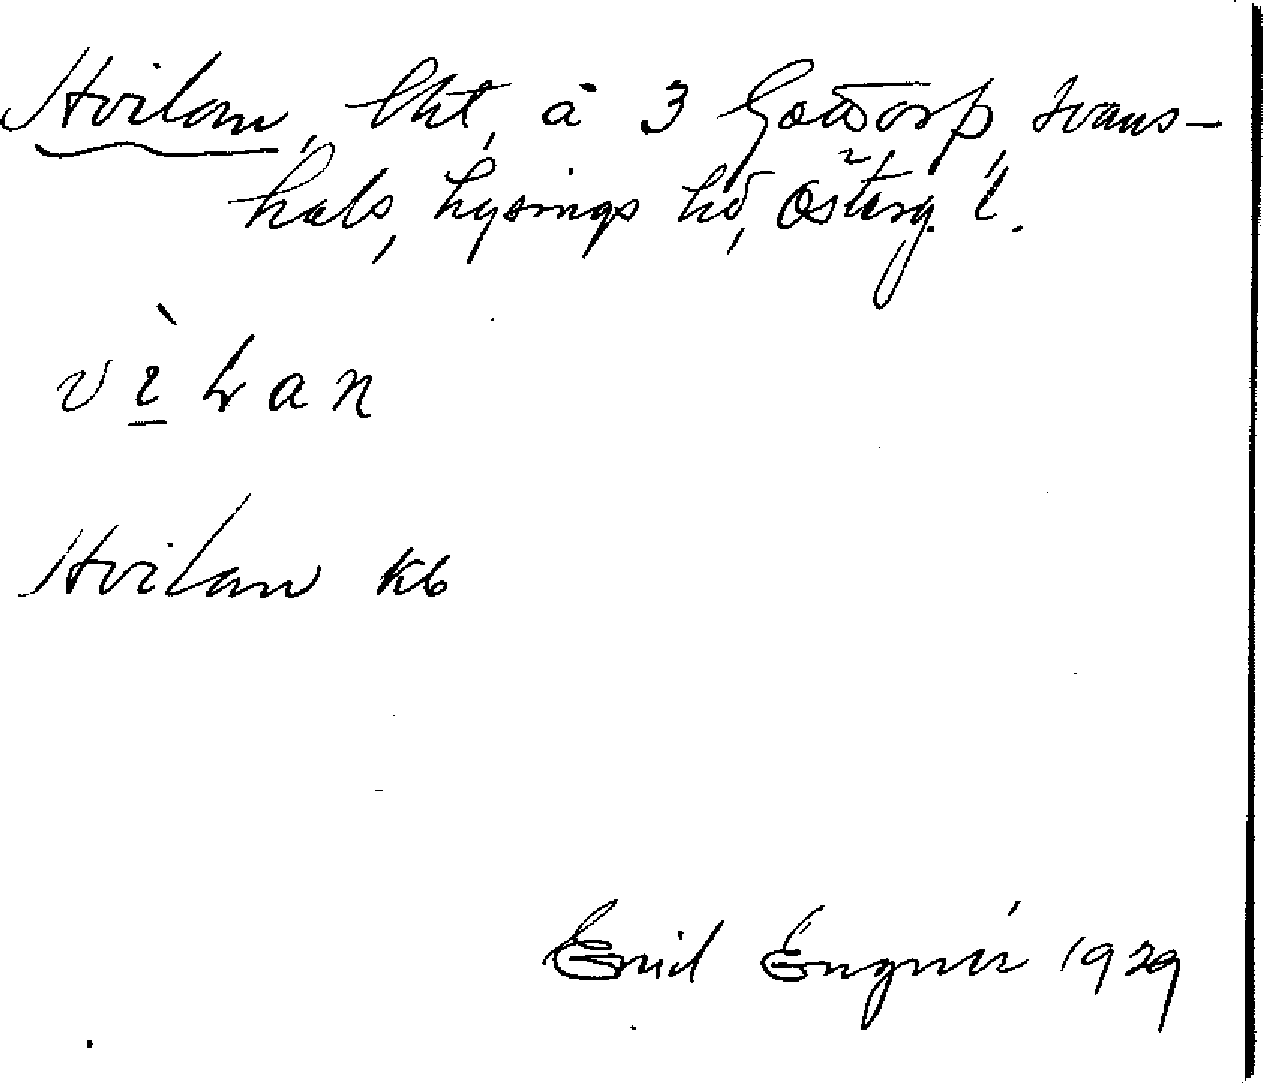 Hvilan, lht, å 3 Gottorp, Svans-
hals, Lysings hd, Österg. l.
vìlan
Hvilan Kb
Emil Engnér 1929